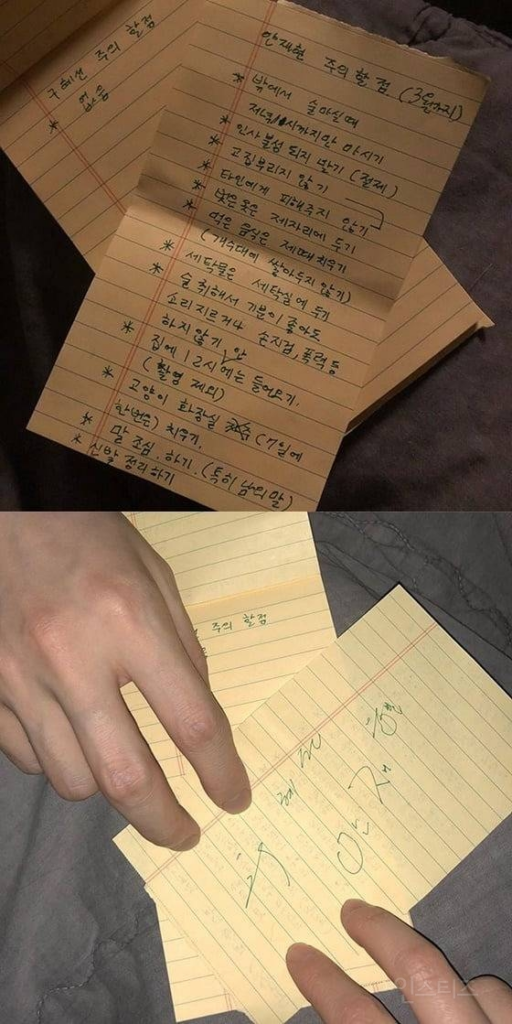 구혜선 주의 할점
* 없음
안재현 주의할 점 (3월까지)
* 밖에서 술마실때
저녁 시까지만 마시기
* 인사불성 되지 말기 (절제)
* 고집부리지 않기
* 타인에게 피해주지 않기
* 벗은옷은 제자리에 두기
* 먹은 음식은 제때 치우기
(개수대에 쌓아두지 않기)
* 세탁물은 세탁실에 두기
* 술 취해서 기분이 좋아도
소리지르거나 손지검, 폭력 등
하지 않기
* 집에 12시 안에는 들어오기.
(촬영 제외)
* 고양이 화장실 (7일에
한번은) 치우기.
* 말 조심. 하기. (특히 남의 말)
* 신발 정리하기
주의 할점
구혜선
안재현
인스티즈